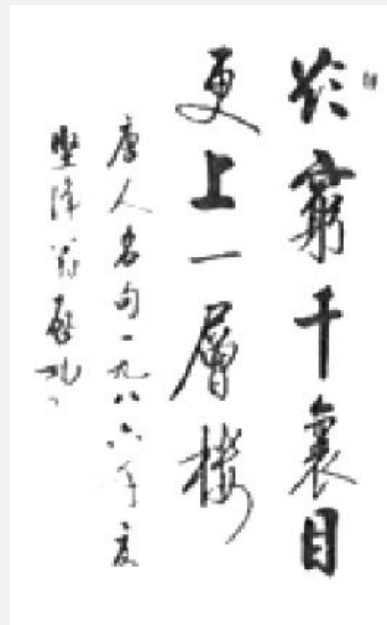 欲窮千裏目
更上一層樓
唐人名句一九八六年夏
堅淨翁啟功